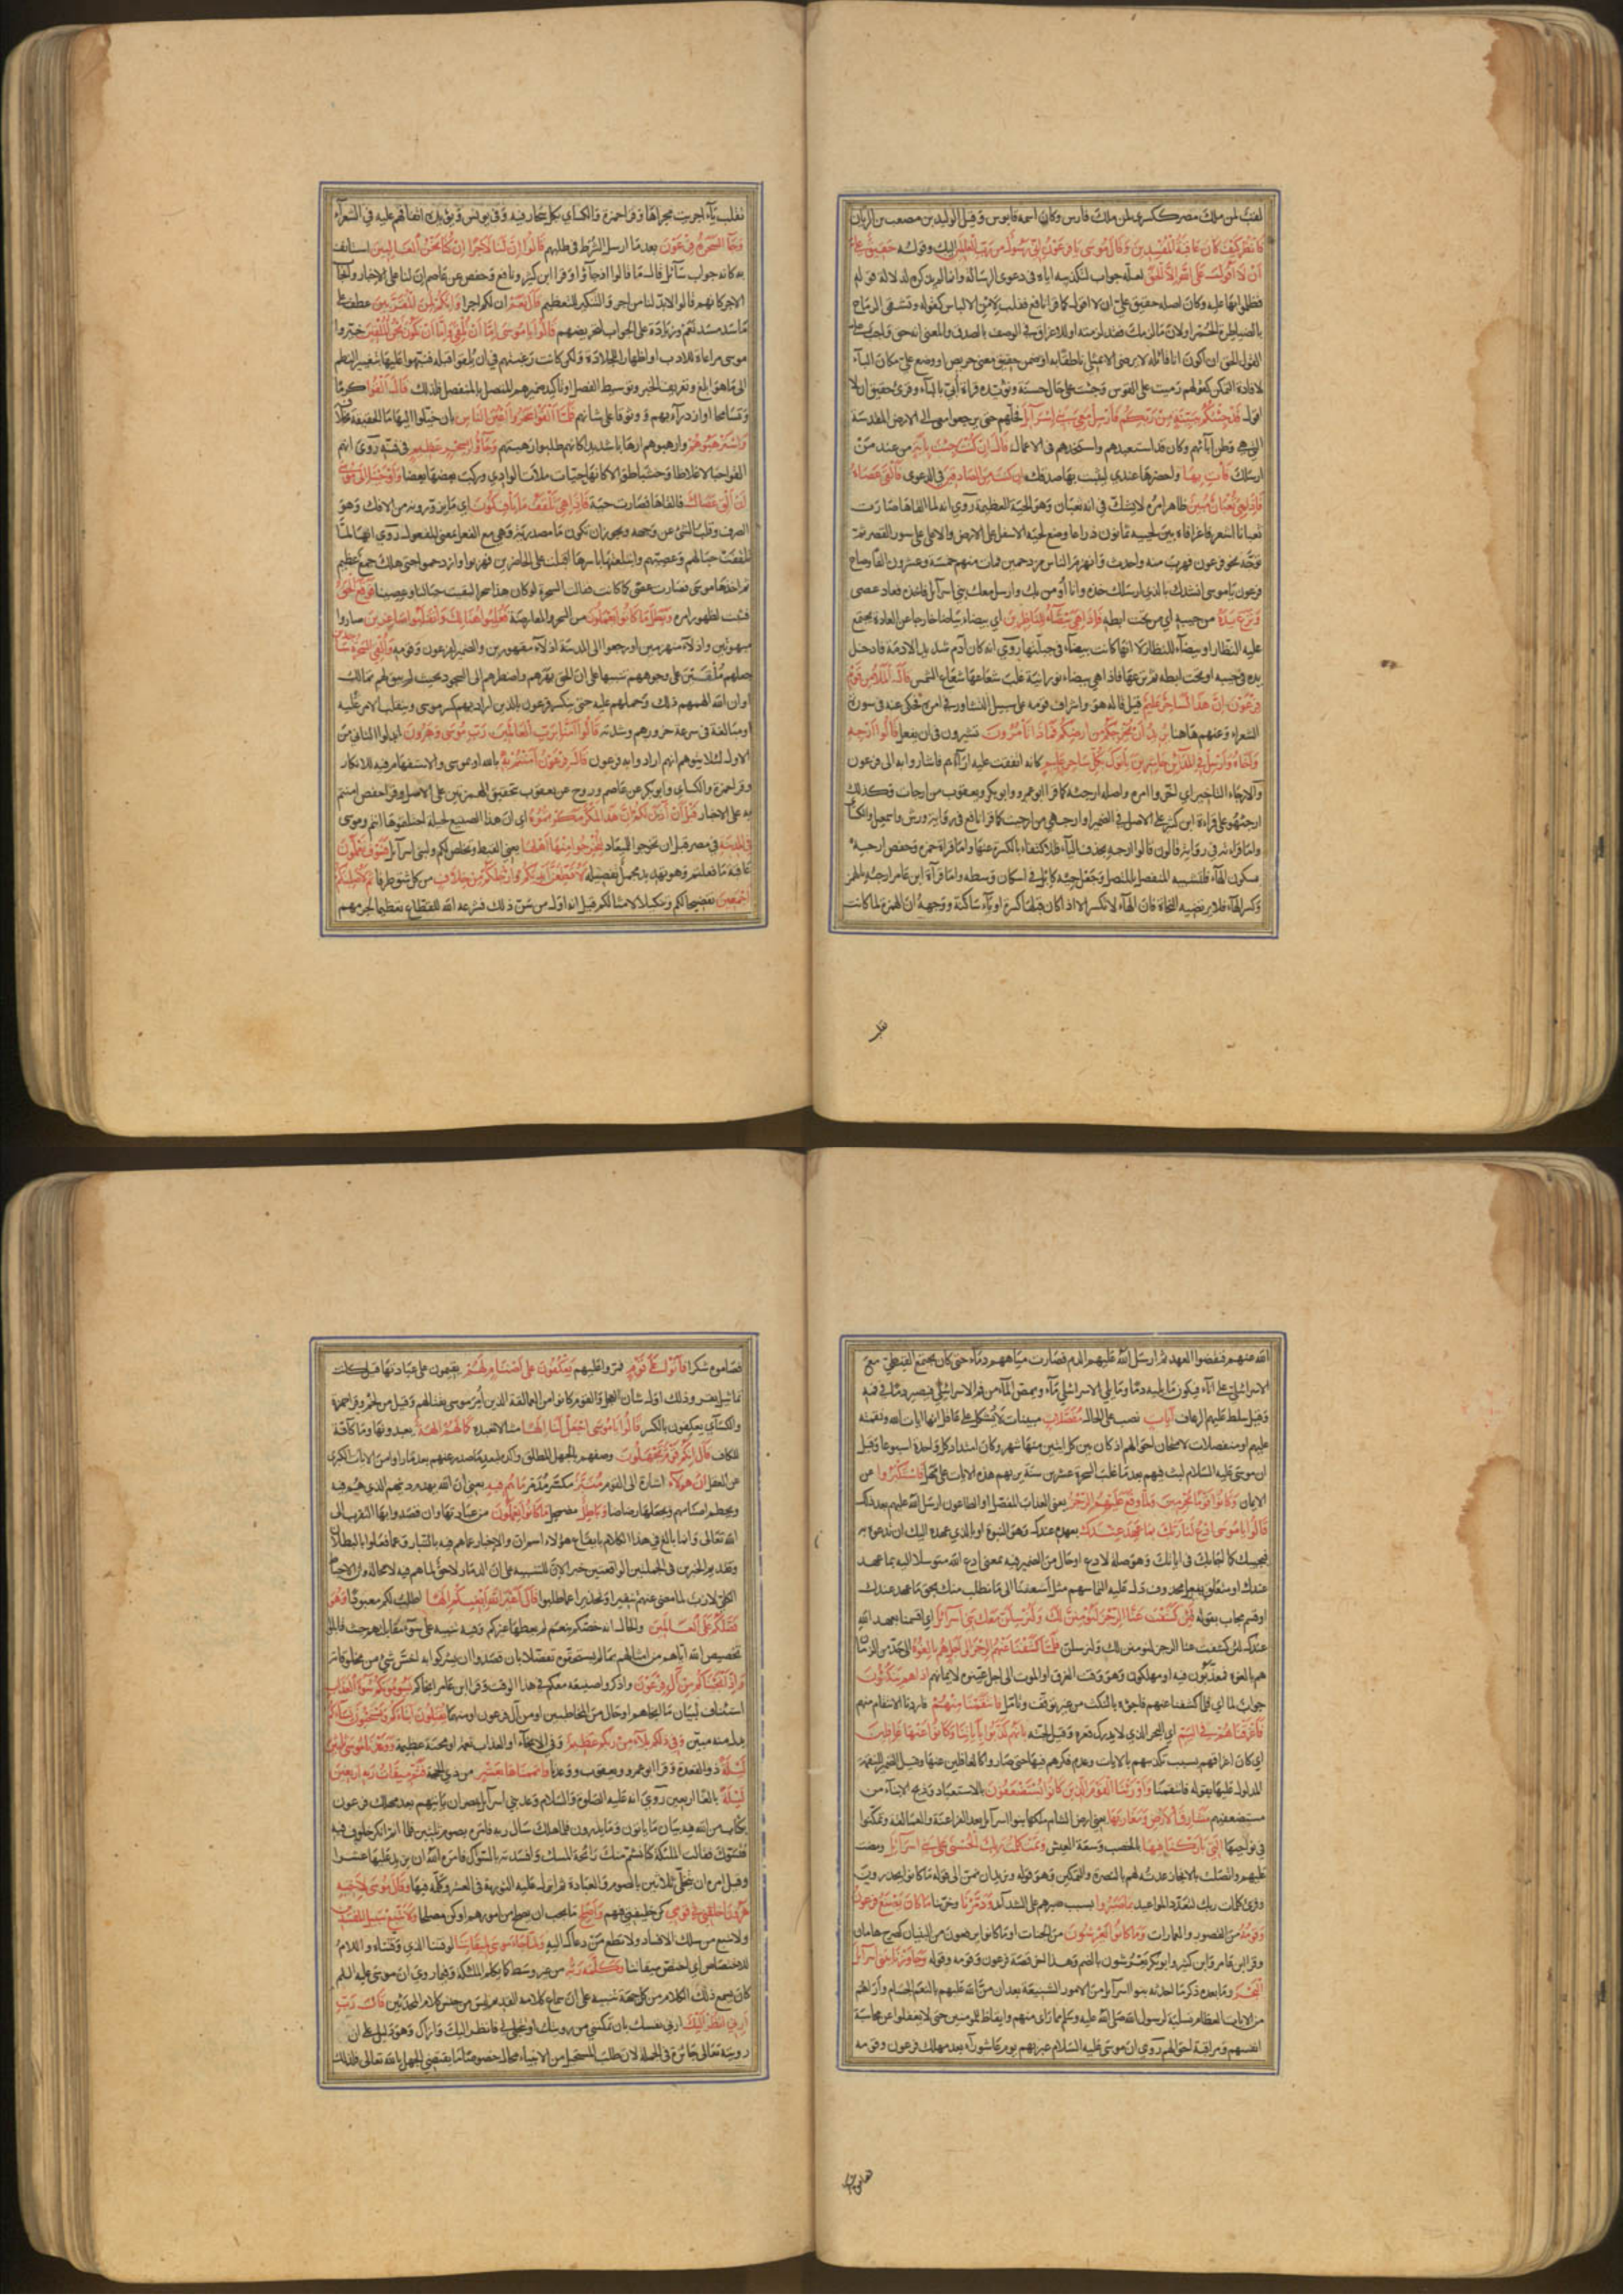 لقب لمن ملك مصر ككسرى لمن ملك فارس وكان اسمه قابوس وقيل الوليد بن مصعب بن الريان
فانظر كيف كان عاقبة المفسدين وقال موسى يا فرعون اني رسول من رب العالمين اليك وقوله حقيق على
ان لا اقول على الله الا الحق لعله جواب لتكذيبه اياه في دعوى الرسالة وانما لم يذكره لدلالة قوله
فظلموا بها عليه وكان اصله حقيق علي ان لا اقول كما قرا نافع فقلب لامن الالباس كقوله وتشقى الرماح
بالضياطرة الحمر او لان ما لزمك فقد لزمته او للاغراق في الوصف بالصدق والمعنى انه حق واجب على
القول الحق ان اكون انا قائله لا يرضى الا بمثلي ناطقا به او ضمن حقيق معنى حريص او وضع على مكان الباء
لافادة التمكن كقولهم رميت على القوس وجئت على حال حسنة ويؤيده قراءة ابي بالباء وقرئ حقيق ان لا
اقول قد جئتكم ببينة من ربكم فارسل معي بني اسرائيل فخلهم حتى يرجعوا معي الى الارض المقدسة
التي هي وطن آبائهم وكان قد استعبدهم واستخدمهم في الاعمال قال ان كنت جئت بآية من عند من
ارسلك فأت بها واحضرها عندي ليثبت بها صدقك ان كنت من الصادقين في الدعوى فالقى عصاه
فاذا هي ثعبان مبين ظاهر امره لا يشك في انه ثعبان وهو الحية العظيمة روي انه لما القاها صارت
ثعبانا اشعر فاغرا فاه بين لحييه ثمانون ذراعا وضع لحيه الاسفل على الارض والاعلى على سور القصر ثم
توجه نحو فرعون فهرب منه واحدث وانهزم الناس مزدحمين فمات منهم خمسة وعشرون الفا وصاح
فرعون يا موسى انشدك بالذي ارسلك خذه وانا اؤمن بك وارسل معك بني اسرائيل فاخذه فعاد عصى
ونزع يده من جيبه او من تحت ابطه فاذا هي بيضاء للناظرين اي بيضاء بياضا خارجا عن العادة يجتمع
عليه النظار او بيضاء للنظار لا انها كانت بيضاء في جبلتها روي انه كان آدم شديد الادمة فادخل
يده في جيبه او تحت ابطه ثم نزعها فاذا هي بيضاء نورانية غلب شعاعها شعاع الشمس قال الملأ من قوم
فرعون ان هذا لساحر عليم قيل قاله هو واشراف قومه على سبيل التشاور في امره فحكى عنه في سورة
الشعراء وعنهم هاهنا يريد ان يخرجكم من ارضكم فماذا تأمرون تشيرون في ان نفعل قالوا ارجه
واخاه وارسل في المدائن حاشرين يأتوك بكل ساحر عليم كانه اتفقت عليه اراؤهم فاشاروا به الى فرعون
والارجاء التاخير اي اخر امره واصله ارجئه كما قرا ابو عمرو وابو بكر ويعقوب من ارجات وكذلك
ارجئهو على قراءة ابن كثير على الاصل في الضمير او ارجهي من ارجيت كما قرا نافع في رواية ورش واسمعيل والكسائي
واما قراءته في رواية قالون قالوا ارجه بحذف الياء فللاكتفاء بالكسرة عنها واما قراءة حمزة وحفص ارجه
بسكون الهاء فلتشبيه المنفصل بالمتصل وجعل جه كابل في اسكان وسطه واما قراءة ابن عامر ارجئه بالهمز
وكسر الهاء فلا يرتضيه النحاة فان الهاء لا تكسر الا اذا كان قبلها كسرة او ياء ساكنة ووجهه ان الهمزة لما كانت
تقلب ياء اجريت مجراها وقرا حمزة والكسائي بكل سحار فيه وفي يونس ويؤيده اتفاقهم عليه في الشعراء
وجاء السحرة فرعون بعد ما ارسل الشرط في طلبهم قالوا ان لنا لاجرا ان كنا نحن الغالبين استانف
به كانه جواب سائل قال ما قالوا اذ جاؤا وقرا ابن كثير ونافع وحفص عن عاصم ان لنا على الاخبار وايجاب
الاجر كانهم قالوا لابد لنا من اجر والتنكير للتعظيم قال نعم ان لكم اجرا وانكم لمن المقربين عطف على
ما سد مسده نعم وزيادة على الجواب لتحريضهم قالوا يا موسى اما ان تلقي واما ان نكون نحن الملقين خيروا
موسى مراعاة للادب او اظهارا للجلادة ولكن كانت رغبتهم في ان يلقوا قبله فنبهوا عليها بتغيير النظم
الى ما هو ابلغ وتعريف الخبر وتوسيط الفصل او تاكيد ضميرهم المتصل بالمنفصل فلذلك قال القوا كرما
وتسامحا او ازدراء بهم ووثوقا على شانه فلما القوا سحروا اعين الناس بان خيلوا اليها ما الحقيقة بخلافه
واسترهبوهم وارهبوهم ارهابا شديدا كانهم طلبوا رهبتهم وجاؤا بسحر عظيم في فنه روي انهم
القوا حبالا غلاظا وخشبا طوالا كانها حيات ملات الوادي وركبت بعضها بعضا واوحينا الى موسى
ان الق عصاك فالقاها فصارت حية فاذا هي تلقف ما يأفكون اي ما يزورونه من الافك وهو
الصرف وقلب الشئ عن وجهه ويجوز ان تكون ما مصدرية وهي مع الفعل بمعنى المفعول روي انها لما
تلقفت حبالهم وعصيهم وابتلعتها باسرها اقبلت على الحاضرين فهربوا وازدحموا حتى هلك جمع عظيم
ثم اخذها موسى فصارت عصى كما كانت فقالت السحرة لو كان هذا سحرا لبقيت حبالنا وعصينا فوقع الحق
فثبت لظهور امره وبطل ما كانوا يعملون من السحر والمعارضة فغلبوا هنالك وانقلبوا صاغرين صاروا
مبهوتين واذلاء منهزمين او رجعوا الى المدينة اذلاء مقهورين والضمير لفرعون وقومه والقي السحرة ساجدين
جعلهم ملقين على وجوههم تنبيها على ان الحق بهرهم واضطرهم الى السجود بحيث لم يبق لهم تمالك
او ان الله الهمهم ذلك وحملهم عليه حتى ينكسر فرعون بالذين اراد بهم كسر موسى وينقلب الامر عليه
او مبالغة في سرعة خرورهم وشدته قالوا آمنا برب العالمين رب موسى وهرون ابدلوا الثاني من
الاول لئلا يتوهم انهم ارادوا به فرعون قال فرعون آمنتم به بالله او بموسى والاستفهام فيه للانكار
وقرا حمزة والكسائي وابو بكر عن عاصم وروح عن يعقوب بتحقيق الهمزتين على الاصل وقرا حفص امنتم
به على الاخبار قبل ان آذن لكم ان هذا لمكر مكرتموه اي ان هذا الصنيع لحيلة احتلتموها انتم وموسى
في المدينة في مصر قبل ان تخرجوا للميعاد لتخرجوا منها اهلها يعني القبط وتخلص لكم ولبني اسرائيل فسوف تعلمون
عاقبة ما فعلتم وهو تهديد مجمل تفصيله لاقطعن ايديكم وارجلكم من خلاف من كل شق طرفا ثم لاصلبنكم
اجمعين تفضيحا لكم وتنكيلا لامثالكم قيل انه اول من سن ذلك فشرعه الله للقطاع تعظيما لجرمهم
الله عنهم فنقضوا العهد ثم ارسل الله عليهم الدم فصارت مياههم دماء حتى كان يجتمع القبطي مع
الاسرائيلي على اناء فيكون ما يليه دما وما يلي الاسرائيلي ماء ويمص الماء من فم الاسرائيلي فيصير دما في فيه
وقيل سلط عليهم الرعاف آيات نصب على الحال مفصلات مبينات لا تشكل على عاقل انها ايات الله ونقمته
عليهم او منفصلات لامتحان احوالهم اذ كان بين كل ايتين منها شهر وكان امتداد كل واحدة اسبوعا وقيل
ان موسى عليه السلام لبث فيهم بعد ما غلب السحرة عشرين سنة يريهم هذه الايات على مهل فاستكبروا عن
الايمان وكانوا قوما مجرمين ولما وقع عليهم الرجز يعني العذاب المفصل او الطاعون ارسل الله عليهم بعد ذلك
قالوا يا موسى ادع لنا ربك بما عهد عندك بعهده عندك وهو النبوة او بالذي عهده اليك ان تدعوه به
فيجيبك كما اجابك في اياتك وهو صلة لادع او حال من الضمير فيه بمعنى ادع الله متوسلا اليه بما عهد
عندك او متعلق بفعل محذوف دل عليه التماسهم مثل اسعفنا الى ما نطلب منك بحق ما عهد عندك
او قسم مجاب بقوله لئن كشفت عنا الرجز لنؤمنن لك ولنرسلن معك بني اسرائيل اي اقسمنا بعهد الله
عندك لئن كشفت عنا الرجز لنؤمنن لك ولنرسلن فلما كشفنا عنهم الرجز الى اجل هم بالغوه الى حد من الزمان
هم بالغوه فمعذبون فيه او مهلكون وهو وقت الغرق او الموت الى اجل عينوه لايمانهم اذا هم ينكثون
جواب لما اي فلما كشفنا عنهم فاجؤا بالنكث من غير توقف وتامل فانتقمنا منهم فاردنا الانتقام منهم
فاغرقناهم في اليم اي البحر الذي لا يدرك قعره وقيل لجته بانهم كذبوا بآياتنا وكانوا عنها غافلين
اي كان اغراقهم بسبب تكذيبهم بالايات وعدم فكرهم فيها حتى صاروا كالغافلين عنها وقيل الضمير للنقمة
المدلول عليها بقوله فانتقمنا واورثنا القوم الذين كانوا يستضعفون بالاستعباد وذبح الابناء من
مستضعفيهم مشارق الارض ومغاربها يعني ارض الشام ملكها بنوا اسرائيل بعد الفراعنة والعمالقة وتمكنوا
في نواحيها التي باركنا فيها بالخصب وسعة العيش وتمت كلمت ربك الحسنى على بني اسرائيل ومضت
عليهم واتصلت بالانجاز عدته لهم بالنصرة والتمكين وهو قوله ونريد ان نمن الى قوله ما كانوا يحذرون
وقرئ كلمات ربك لتعدد المواعيد بما صبروا بسبب صبرهم على الشدائد ودمرنا وخربنا ما كان يصنع فرعون
وقومه من القصور والعمارات وما كانوا يعرشون من الجنات او ما كانوا يرفعون من البنيان كصرح هامان
وقرا ابن عامر وابو بكر يعرشون بالضم وهذا اخر قصة فرعون وقومه وقوله وجاوزنا ببني اسرائيل
البحر وما بعده ذكر ما احدثه بنوا اسرائيل من الامور الشنيعة بعد ان من الله عليهم بالنعم الجسام واراهم
من الايات العظام تسلية لرسول الله صلى الله عليه وسلم مما راى منهم وايقاظا للمومنين حتى لا يغفلوا عن محاسبة
انفسهم ومراقبة احوالهم روي ان موسى عليه السلام عبر بهم يوم عاشوراء بعد مهلك فرعون وقومه
فصاموه شكرا فأتوا على قوم فمروا عليهم يعكفون على اصنام لهم يقيمون على عبادتها قيل كانت
تماثيل بقر وذلك اول شان العجل والقوم كانوا من العمالقة الذين امر موسى بقتالهم وقيل من لخم وقرا حمزة
والكسائي يعكفون بالكسر قالوا يا موسى اجعل لنا الها مثالا نعبده كما لهم آلهة يعبدونها وما كافة
للكاف قال انكم قوم تجهلون وصفهم بالجهل المطلق واكده لبعد ما صدر عنهم بعد ما راوا من الايات الكبرى
عن العقل ان هؤلاء اشارة الى القوم متبر مكسر مدمر ما هم فيه يعني ان الله يهدم دينهم الذي هم فيه
ويحطم اصنامهم ويجعلها رضاضا وباطل مضمحل ما كانوا يعملون من عبادتها وان قصدوا بها التقرب الى
الله تعالى وانما بالغ في هذا الكلام بايقاع هؤلاء اسم ان والاخبار عما هم فيه بالتبار وعما فعلوا بالبطلان
وتقديم الخبرين في الجملتين الواقعتين خبرا لان للتنبيه على ان الدمار لاحق لما هم فيه لا محالة وان الاحباط
الكلي لازب لما مضى عنهم تنفيرا وتحذيرا عما طلبوا قال اغير الله ابغيكم الها اطلب لكم معبودا وهو
فضلكم على العالمين والحال انه خصكم بنعم لم يعطها غيركم وفيه تنبيه على سوء مقابلتهم حيث قابلوا
تخصيص الله اياهم من امثالهم بما لم يستحقوه تفضلا بان قصدوا ان يشركوا به اخس شئ من مخلوقاته
واذ انجيناكم من آل فرعون واذكروا صنيعه معكم في هذا الوقت وقرا ابن عامر انجاكم يسومونكم سوء العذاب
استئناف لبيان ما انجاهم او حال من المخاطبين او من آل فرعون او منهما يقتلون ابناءكم ويستحيون نساءكم
بدل منه مبين وفي ذلكم بلاء من ربكم عظيم وفي الانجاء او العذاب نعمة او محنة عظيمة وواعدنا موسى ثلثين
ليلة ذو القعدة وقرا ابو عمرو ويعقوب ووعدنا واتممناها بعشر من ذي الحجة فتم ميقات ربه اربعين
ليلة بالغا اربعين روي انه عليه الصلوة والسلام وعد بني اسرائيل بمصر ان يأتيهم بعد مهلك فرعون
بكتاب من الله فيه بيان ما يأتون وما يذرون فلما هلك سال ربه فامره بصوم ثلثين فلما اتم انكر خلوف فيه
فتسوك فقالت الملئكة كنا نشم منك رائحة المسك وافسدته بالسواك فامره الله ان يزيد عليها عشرا
وقيل امره ان يتخلى ثلاثين بالصوم والعبادة ثم انزل عليه التورية في العشر وكلمه فيها وقال موسى لاخيه
هرون اخلفني في قومي كن خليفتي فيهم واصلح ما يجب ان يصلح من امورهم او كن مصلحا ولا تتبع سبيل المفسدين
ولا تتبع من سلك الافساد ولا تطع من دعاك اليه ولما جاء موسى لميقاتنا لوقتنا الذي وقتناه واللام
للاختصاص اي اختص مجيئه بميقاتنا وكلمه ربه من غير وسط كما يكلم الملئكة وفيما روي ان موسى عليه السلام
كان يسمع ذلك الكلام من كل جهة تنبيه على ان سماع كلامه القديم ليس من جنس كلام المحدثين قال رب
ارني انظر اليك ارني نفسك بان تمكنني من رؤيتك او تتجلى لي فانظر اليك واراك وهو دليل على ان
رويته تعالى جائزة في الجملة لان طلب المستحيل من الانبياء محال خصوصا ما يقتضي الجهل بالله تعالى فلذلك